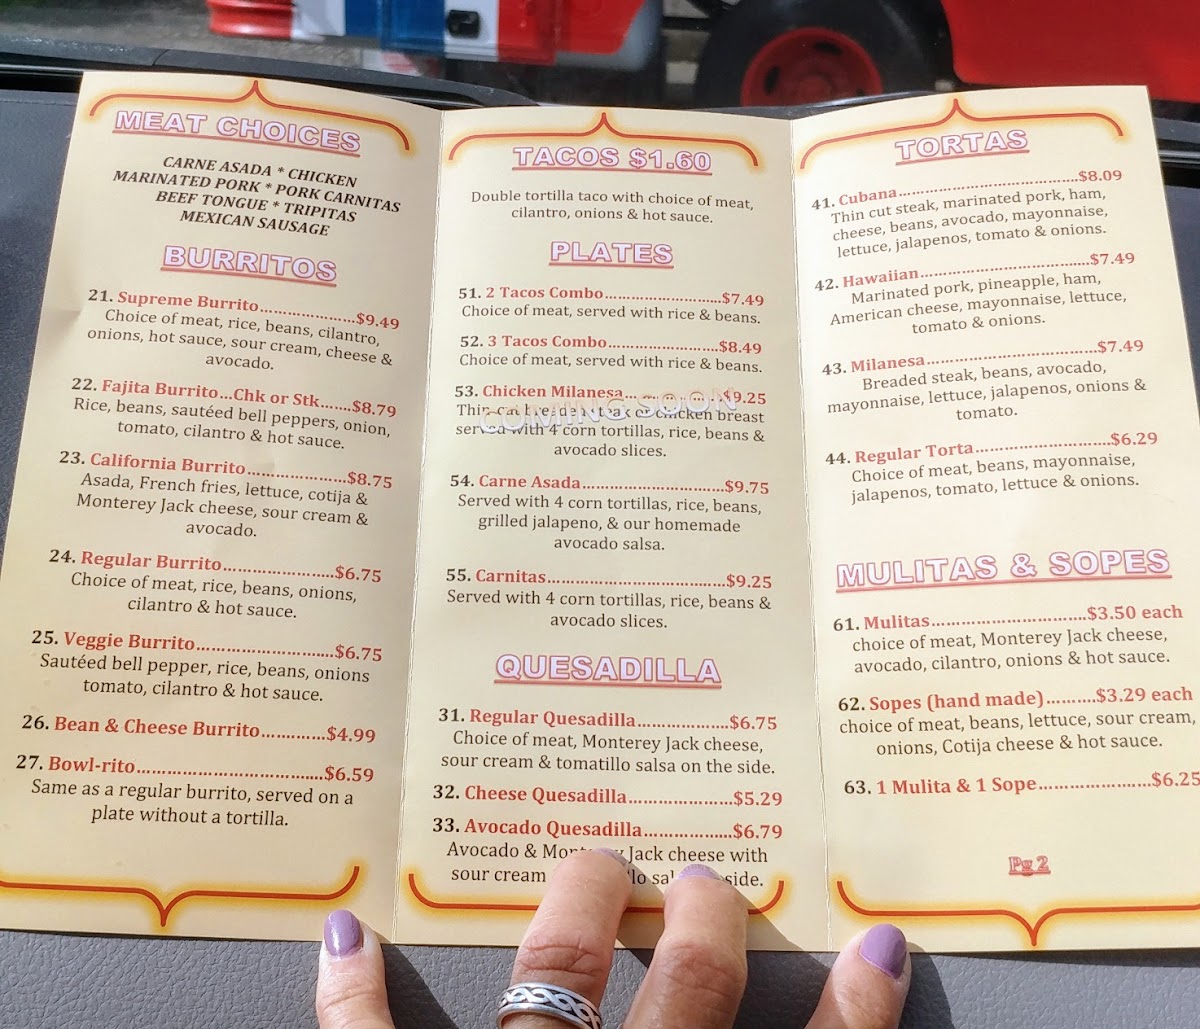 MEAT CHOICES
CARNE ASADA * CHICKEN
MARINATED PORK * PORK CARNITAS
BEEF TONGUE * TRIPITAS
MEXICAN SAUSAGE
BURRITOS
21. Supreme Burrito.....................$9.49
Choice of meat, rice, beans, cilantro,
onions, hot sauce, sour cream, cheese &
avocado.
22. Fajita Burrito...Chk or Stk.......$8.79
Rice, beans, sautéed bell peppers, onion,
tomato, cilantro & hot sauce.
23. California Burrito......................$8.75
Asada, French fries, lettuce, cotija &
Monterey Jack cheese, sour cream &
avocado.
24. Regular Burrito.........................$6.75
Choice of meat, rice, beans, onions,
cilantro & hot sauce.
25. Veggie Burrito...............................$6.75
Sautéed bell pepper, rice, beans, onions
tomato, cilantro & hot sauce.
26. Bean & Cheese Burrito..............$4.99
27. Bowl-rito.........................................$6.59
Same as a regular burrito, served on a
plate without a tortilla.
TACOS $1.60
Double tortilla taco with choice of meat,
cilantro, onions & hot sauce.
PLATES
51. 2 Tacos Combo..........................$7.49
Choice of meat, served with rice & beans.
52. 3 Tacos Combo.........................$8.49
Choice of meat, served with rice & beans.
53. Chicken Milanesa......................$9.25
COMING SOON
Thin cut breaded steak or chicken breast
served with 4 corn tortillas, rice, beans &
avocado slices.
54. Carne Asada................................$9.75
Served with 4 corn tortillas, rice, beans,
grilled jalapeno, & our homemade
avocado salsa.
55. Carnitas........................................$9.25
Served with 4 corn tortillas, rice, beans &
avocado slices.
QUESADILLA
31. Regular Quesadilla.....................$6.75
Choice of meat, Monterey Jack cheese,
sour cream & tomatillo salsa on the side.
32. Cheese Quesadilla.......................$5.29
33. Avocado Quesadilla...................$6.79
Avocado & Monterey Jack cheese with
sour cream side.
TORTAS
41. Cubana........................................$8.09
Thin cut steak, marinated pork, ham,
cheese, beans, avocado, mayonnaise,
lettuce, jalapenos, tomato & onions.
42. Hawaiian.....................................$7.49
Marinated pork, pineapple, ham,
American cheese, mayonnaise, lettuce,
tomato & onions.
43. Milanesa.....................................$7.49
Breaded steak, beans, avocado,
mayonnaise, lettuce, jalapenos, onions &
tomato.
44. Regular Torta..............................$6.29
Choice of meat, beans, mayonnaise,
jalapenos, tomato, lettuce & onions.
MULITAS & SOPES
61. Mulitas..................................$3.50 each
choice of meat, Monterey Jack cheese,
avocado, cilantro, onions & hot sauce.
62. Sopes (hand made)...........$3.29 each
choice of meat, beans, lettuce, sour cream,
onions, Cotija cheese & hot sauce.
63. 1 Mulita & 1 Sope.........................$6.25
Pg 2